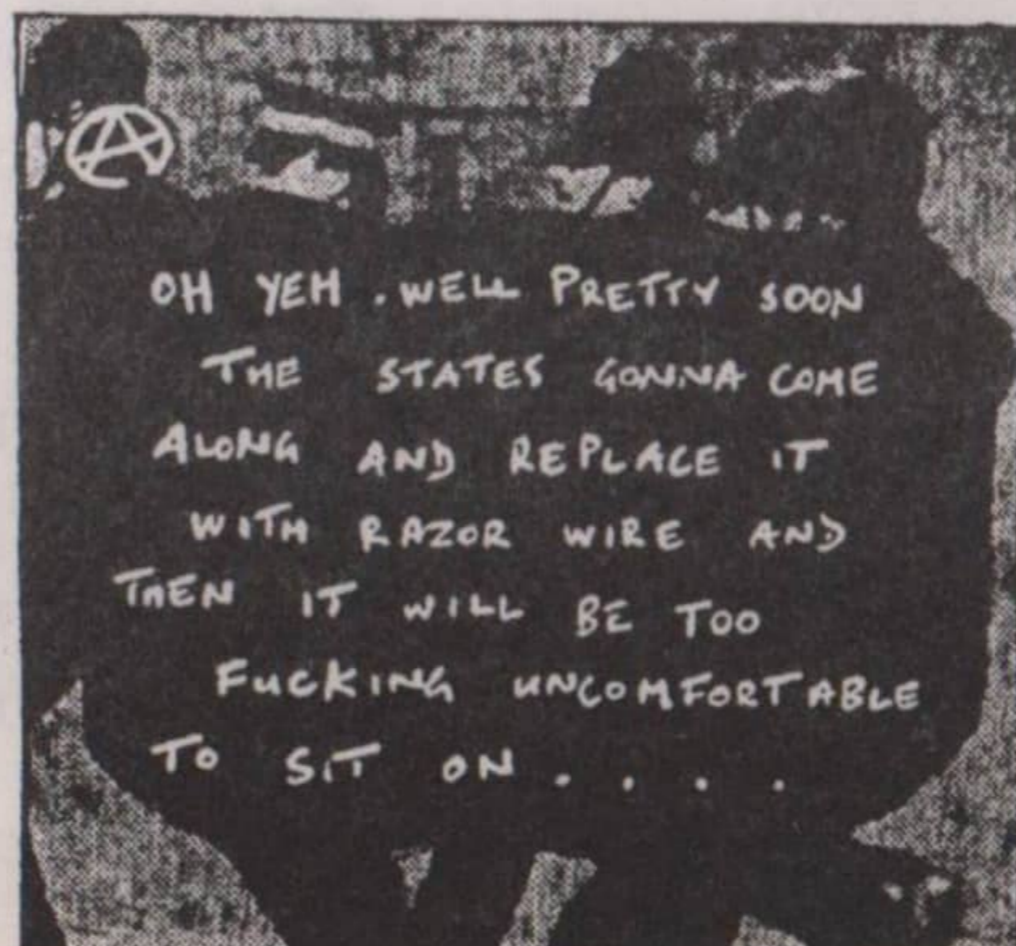 OH YEH. WELL PRETTY SOON
THE STATES GONNA COME
ALONG AND REPLACE IT
WITH RAZOR WIRE AND
THEN IT WILL BE TOO
FUCKING UNCOMFORTABLE
TO SIT ON . . . .